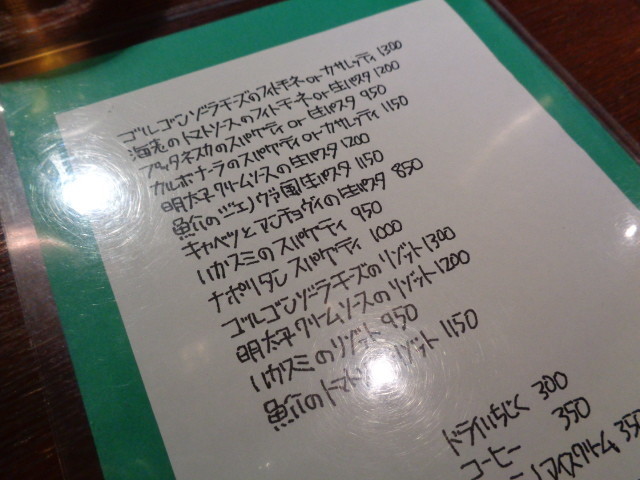 ゴルゴンゾラチーズのフィトチーネ or カサレッティ 1300
海老のトマトソースのフィトチーネ or 生パスタ 1200
プッタネスカのスパゲティ or 生パスタ 950
カルボナーラのスパゲティ or カサレッティ 1150
明太子クリームソースの生パスタ 1200
魚介のジェノヴァ風生パスタ 1150
キャベツとアンチョヴィの生パスタ 850
いかスミのスパゲティ 950
ナポリタン スパゲティ 1000
ゴルゴンゾーラチーズのリゾット 1300
明太子クリームソースのリゾット 1200
いかスミのリゾット 950
魚介のトマト リゾット 1150
ドライいちじく 300
コーヒー 350
アイスクリーム 350